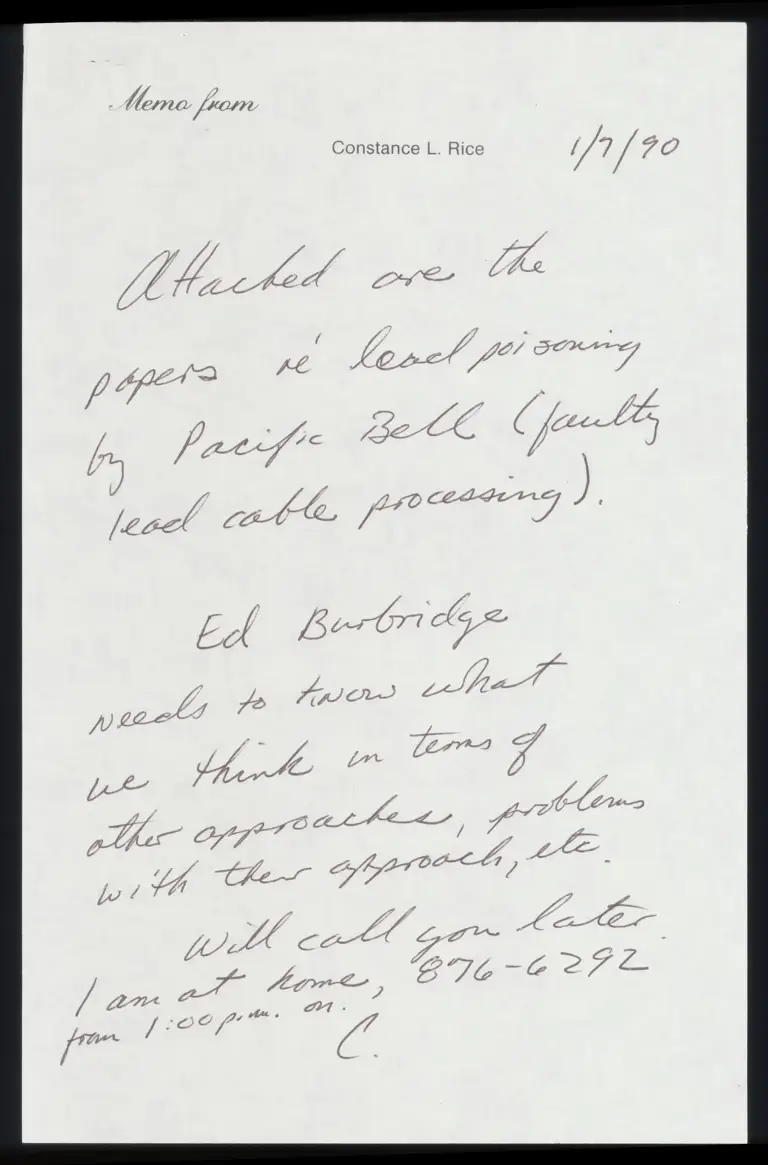 Memo from
Constance L. Rice 1/7/90
Attached are the
papers re' lead poisoning
by Pacific Bell (faulty
lead cable processing).
Ed Burbridge
needs to know what
we think in terms of
other approaches, problems
with their approach, etc.
Will call you later.
I am at home, 876-6292
from 1:00 p.m. on.
C.